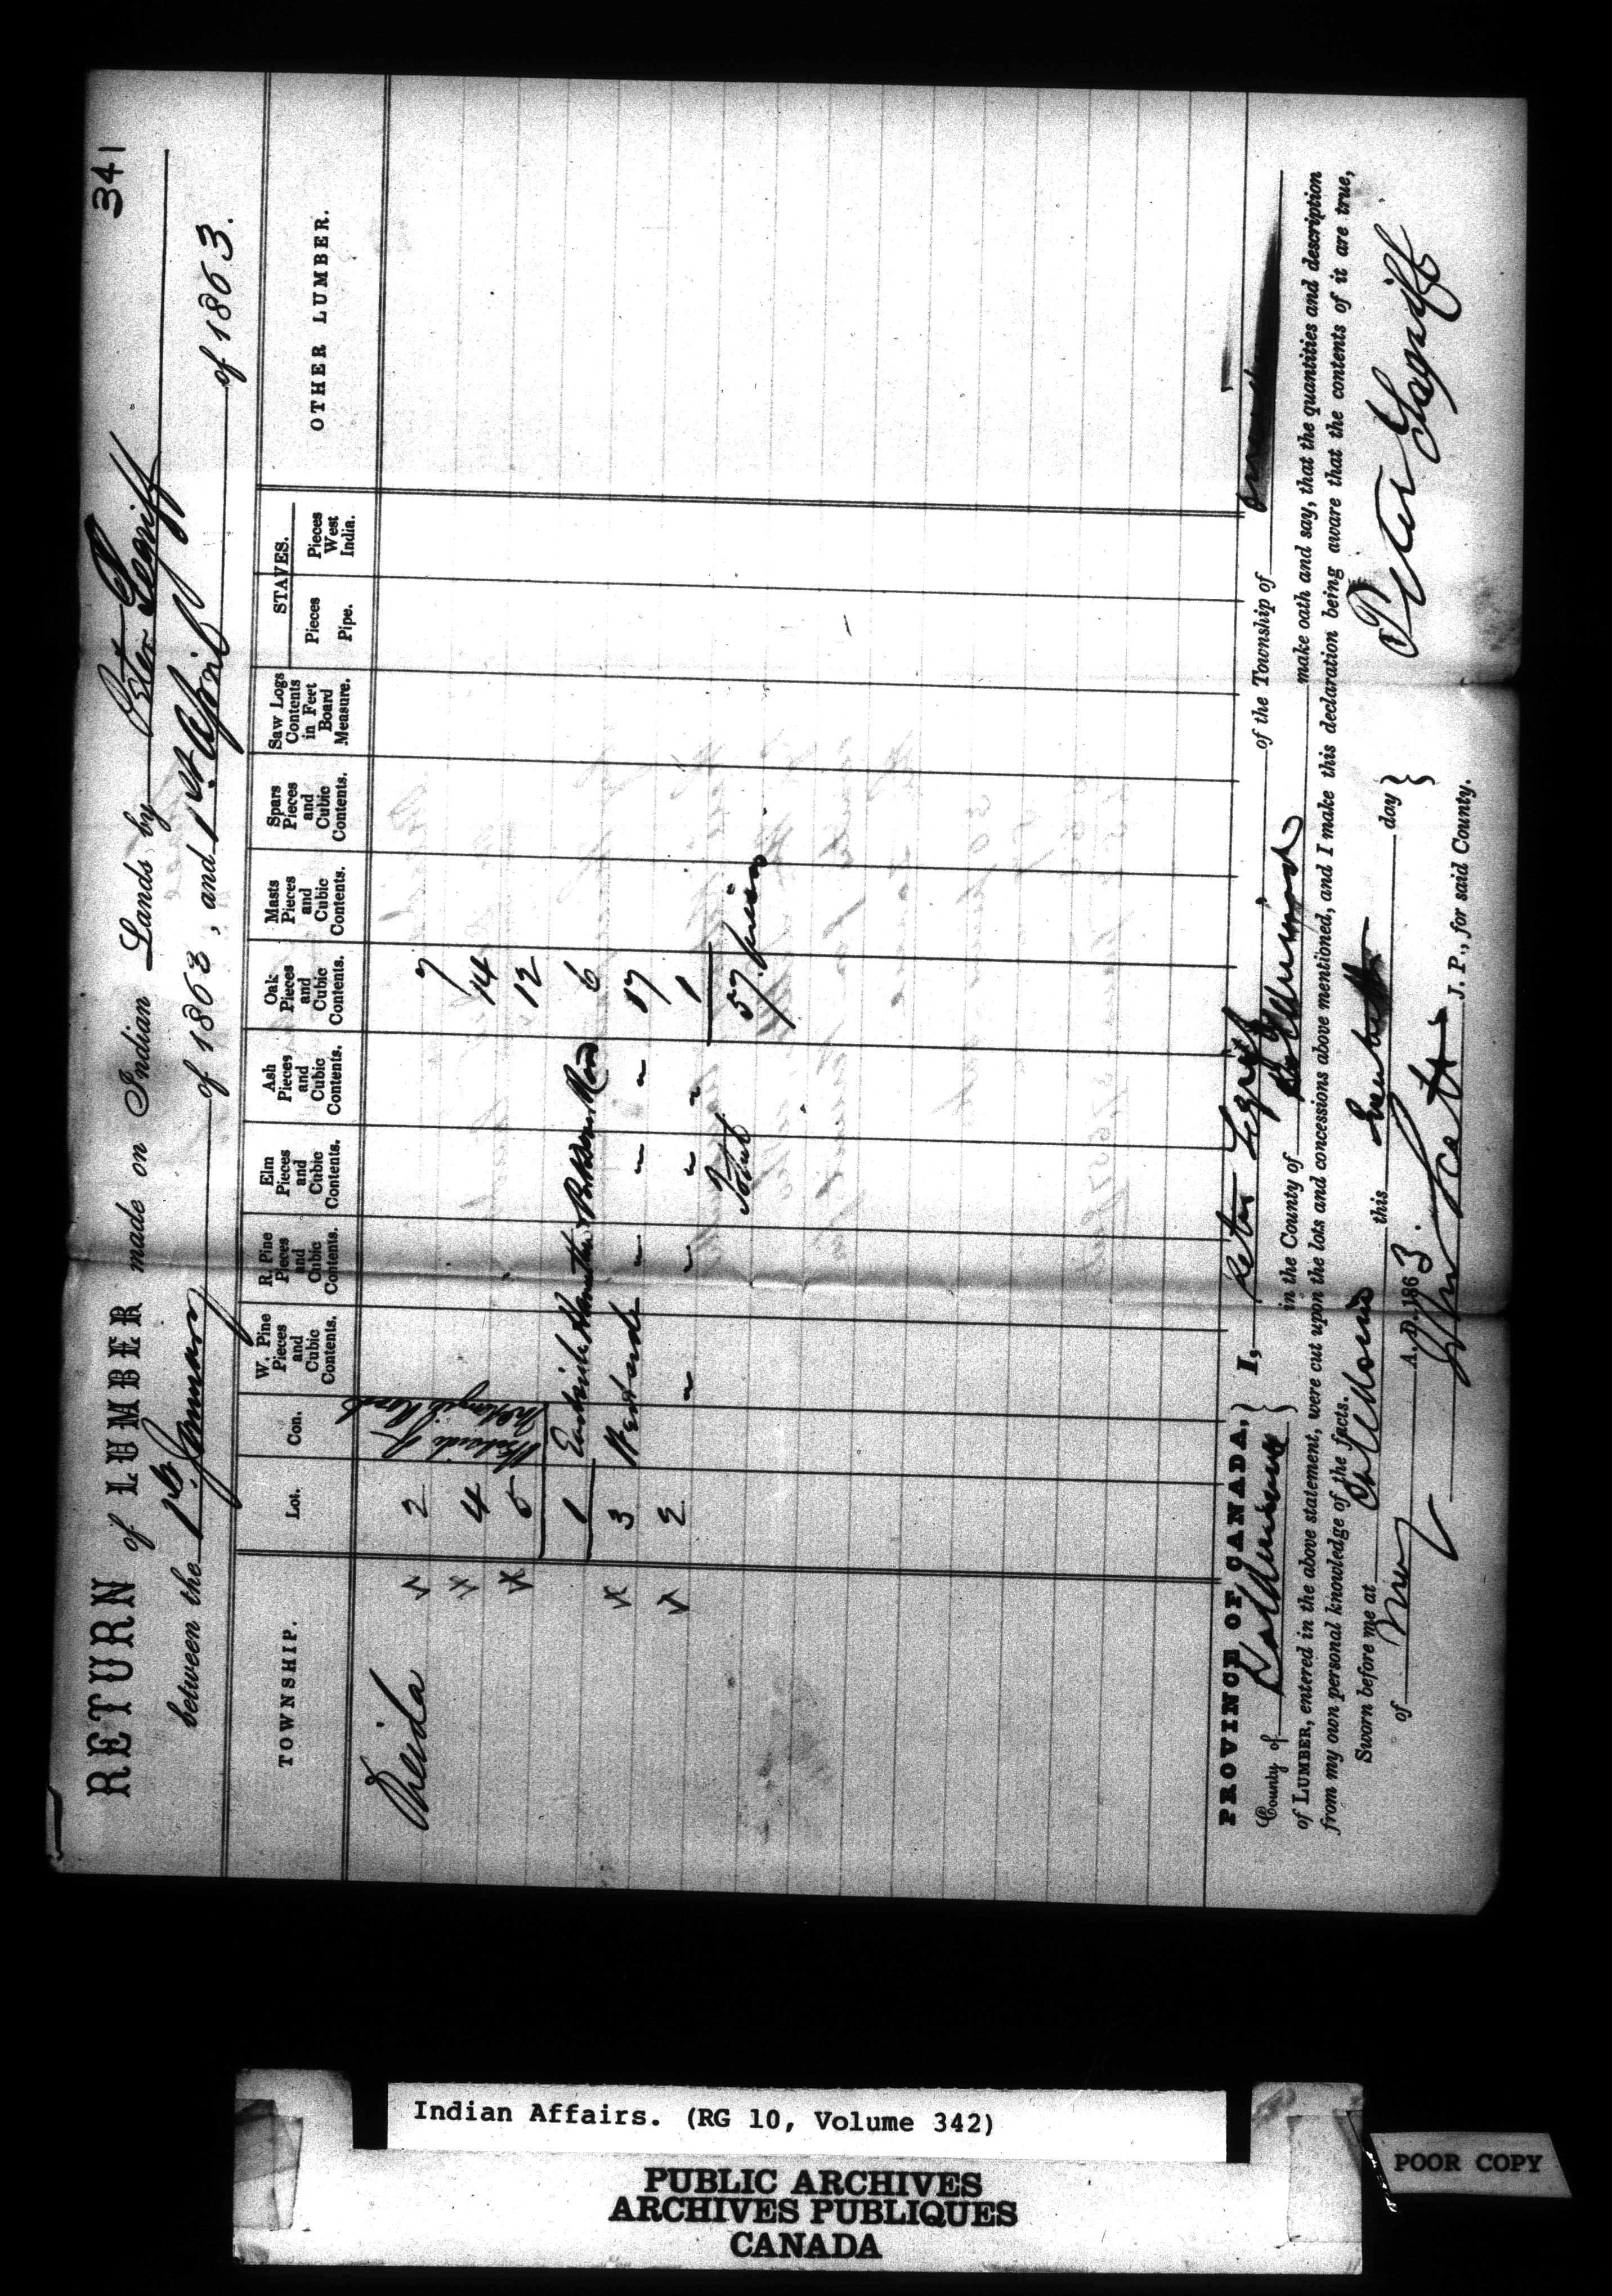 341
RETURN of LUMBER made on Indian Lands by Peter
between the 1st January of 1863, and 1st April of 1863.
TOWNSHIP. Lot. Con. W. Pine Pieces and Cubic Contents. R. Pine Pieces and Cubic Contents. Elm Pieces and Cubic Contents. Ash Pieces and Cubic Contents. Oak Pieces and Cubic Contents. Masts Pieces and Cubic Contents. Spars Pieces and Cubic Contents. Saw Logs Contents in Feet Board Measure. STAVES. Pieces Pipe. Pieces West India. OTHER LUMBER.
Oneida 2 7
4 14
5 12
1 East side 6
3 West side " " " 17
2 " " " " 1
Total 57 pieces
PROVINCE OF CANADA, I, Peter of the Township of
County of Haldimand in the County of Haldimand make oath and say, that the quantities and description
of LUMBER, entered in the above statement, were cut upon the lots and concessions above mentioned, and I make this declaration being aware that the contents of it are true,
from my own personal knowledge of the facts.
Sworn before me at this day
of A.D. 1863 Peter
John J. P., for said County.
Indian Affairs. (RG 10, Volume 342)
PUBLIC ARCHIVES
ARCHIVES PUBLIQUES
CANADA
POOR COPY